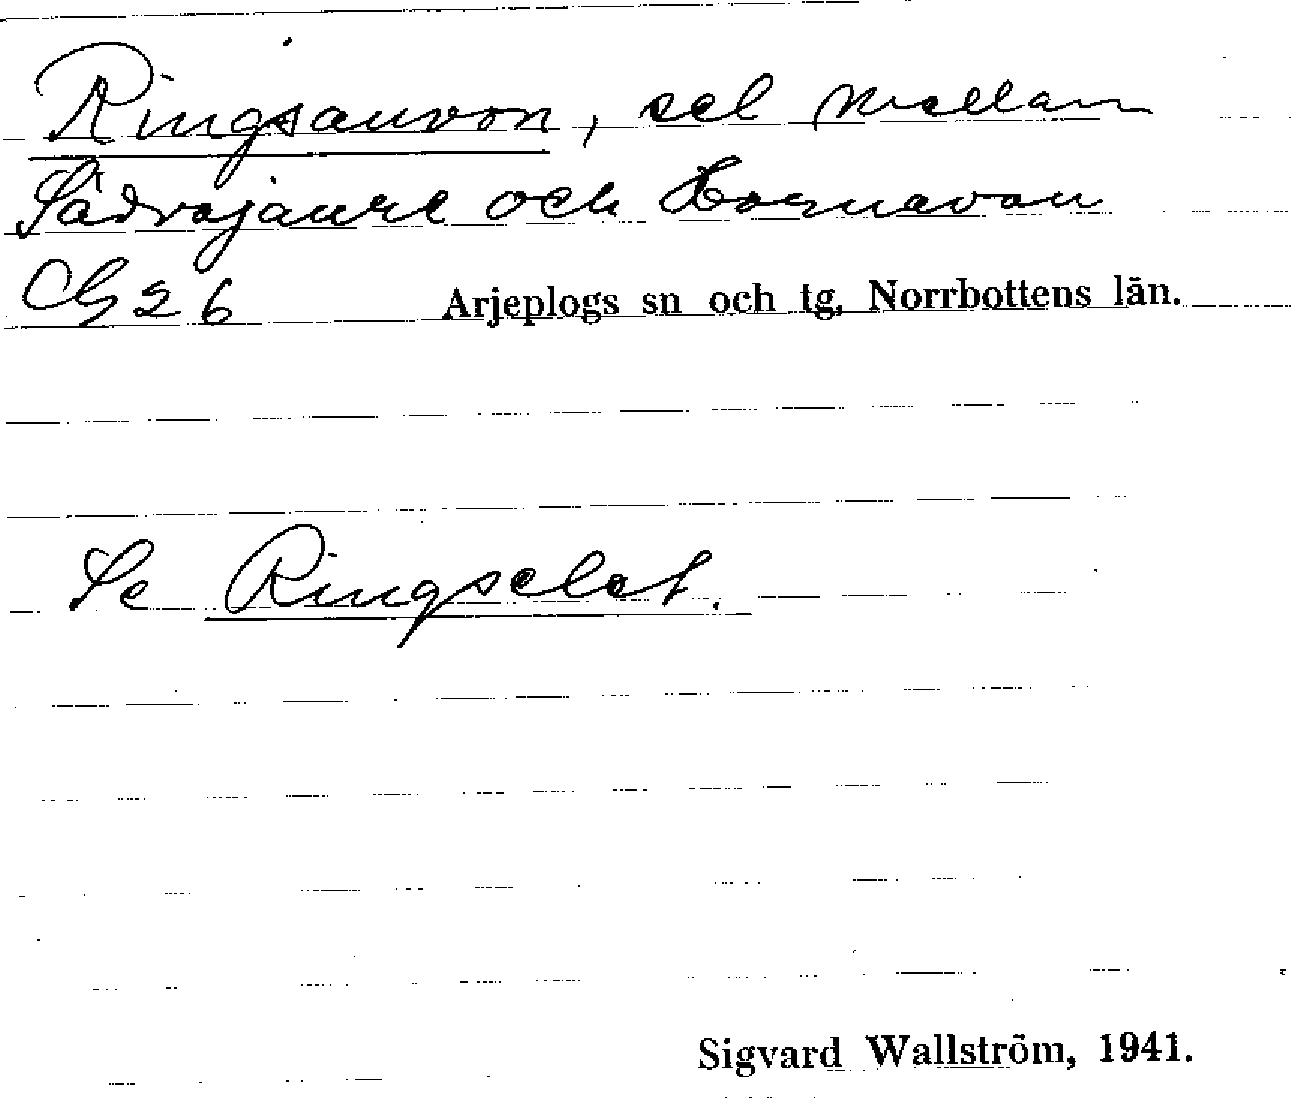 Ringsauvon, sel mellan
Sädvajaure och Hornavan
CG 26 Arjeplogs sn och tg, Norrbottens län.
Se Ringselet.
Sigvard Wallström, 1941.